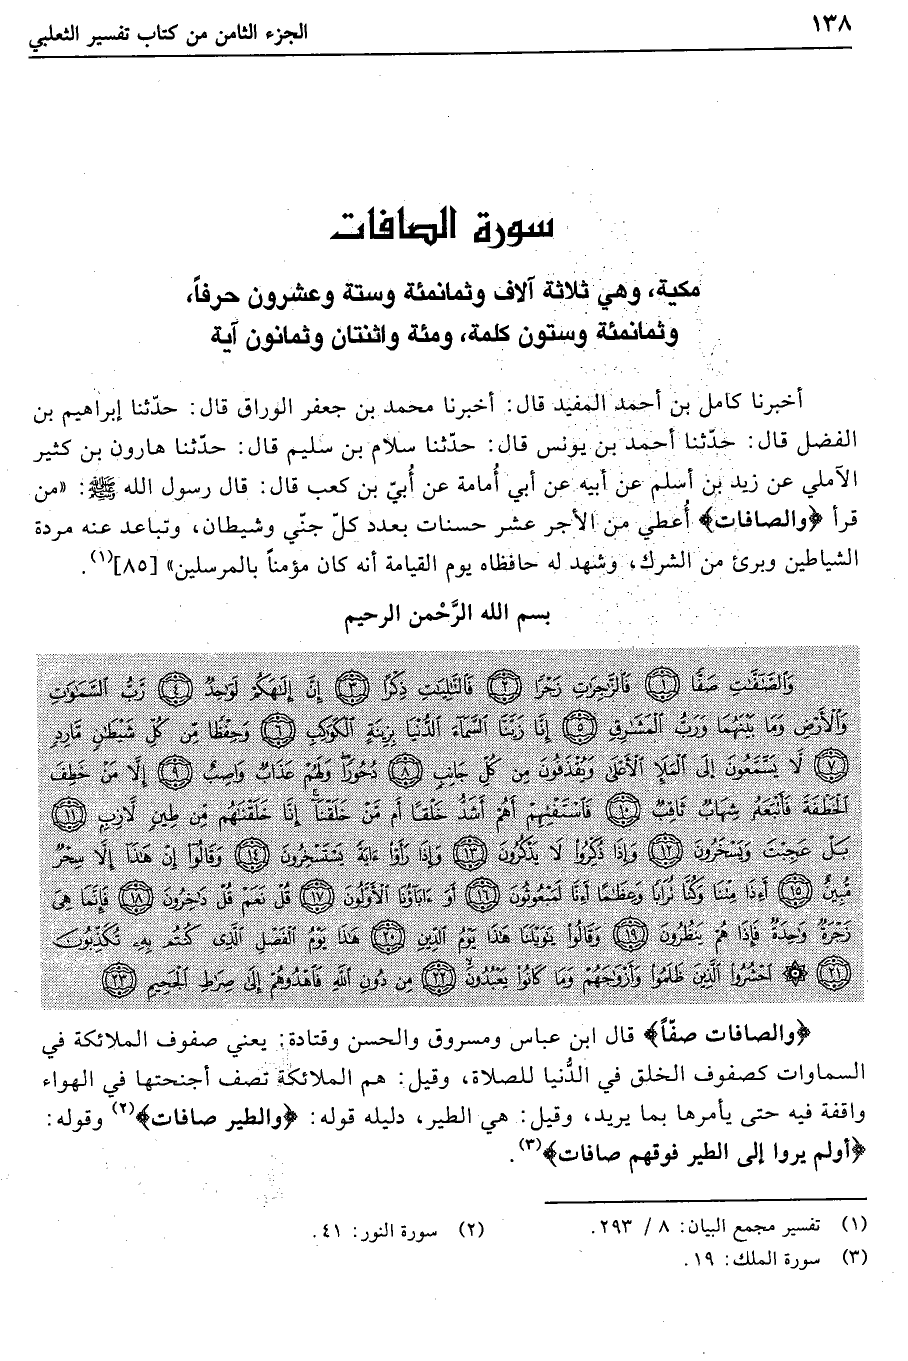 ١٣٨
الجزء الثامن من كتاب تفسير الثعلبي
سورة الصافات
مكية، وهي ثلاثة آلاف وثمانمئة وستة وعشرون حرفاً،
وثمانمئة وستون كلمة، ومئة واثنتان وثمانون آية
أخبرنا كامل بن أحمد المفيد قال: أخبرنا محمد بن جعفر الوراق قال: حدّثنا إبراهيم بن
الفضل قال: حدّثنا أحمد بن يونس قال: حدّثنا سلام بن سليم قال: حدّثنا هارون بن كثير
الآملي عن زيد بن أسلم عن أبيه عن أبي أُمامة عن أُبيّ بن كعب قال: قال رسول الله ﷺ: «من
قرأ ﴿والصافات﴾ أُعطي من الأجر عشر حسنات بعدد كلّ جنّي وشيطان، وتباعد عنه مردة
الشياطين وبرئ من الشرك، وشهد له حافظاه يوم القيامة أنه كان مؤمناً بالمرسلين» [٨٥](١).
بسم الله الرَّحْمن الرحيم
وَالصَّٰٓفَّٰتِ صَفًّا ١ فَالزَّٰجِرَٰتِ زَجْرًا ٢ فَالتَّٰلِيَٰتِ ذِكْرًا ٣ إِنَّ إِلَٰهَكُمْ لَوَٰحِدٌ ٤ رَّبُّ السَّمَٰوَٰتِ
وَالْأَرْضِ وَمَا بَيْنَهُمَا وَرَبُّ الْمَشَٰرِقِ ٥ إِنَّا زَيَّنَّا السَّمَآءَ الدُّنْيَا بِزِينَةٍ الْكَوَاكِبِ ٦ وَحِفْظًا مِّن كُلِّ شَيْطَٰنٍ مَّارِدٍ
٧ لَا يَسَّمَّعُونَ إِلَى الْمَلَإِ الْأَعْلَىٰ وَيُقْذَفُونَ مِن كُلِّ جَانِبٍ ٨ دُحُورًا وَلَهُمْ عَذَابٌ وَاصِبٌ ٩ إِلَّا مَنْ خَطِفَ
الْخَطْفَةَ فَأَتْبَعَهُ شِهَابٌ ثَاقِبٌ ١٠ فَاسْتَفْتِهِمْ أَهُمْ أَشَدُّ خَلْقًا أَم مَّنْ خَلَقْنَآ إِنَّا خَلَقْنَٰهُم مِّن طِينٍ لَّازِبٍ ١١
بَلْ عَجِبْتَ وَيَسْخَرُونَ ١٢ وَإِذَا ذُكِّرُوا لَا يَذْكُرُونَ ١٣ وَإِذَا رَأَوْا ءَايَةً يَسْتَسْخِرُونَ ١٤ وَقَالُوٓا إِنْ هَٰذَآ إِلَّا سِحْرٌ
مُّبِينٌ ١٥ أَءِذَا مِتْنَا وَكُنَّا تُرَابًا وَعِظَٰمًا أَءِنَّا لَمَبْعُوثُونَ ١٦ أَوَ ءَابَآؤُنَا الْأَوَّلُونَ ١٧ قُلْ نَعَمْ وَأَنتُمْ دَٰخِرُونَ ١٨ فَإِنَّمَا هِىَ
زَجْرَةٌ وَٰحِدَةٌ فَإِذَا هُمْ يَنظُرُونَ ١٩ وَقَالُوا يَٰوَيْلَنَا هَٰذَا يَوْمُ الدِّينِ ٢٠ هَٰذَا يَوْمُ الْفَصْلِ الَّذِى كُنتُم بِهِۦ تُكَذِّبُونَ
٢١ ۞ احْشُرُوا الَّذِينَ ظَلَمُوا وَأَزْوَٰجَهُمْ وَمَا كَانُوا يَعْبُدُونَ ٢٢ مِن دُونِ اللَّهِ فَاهْدُوهُمْ إِلَىٰ صِرَٰطِ الْجَحِيمِ ٢٣
﴿والصافات صفّاً﴾ قال ابن عباس ومسروق والحسن وقتادة: يعني صفوف الملائكة في
السماوات كصفوف الخلق في الدُّنيا للصلاة، وقيل: هم الملائكة تصف أجنحتها في الهواء
واقفة فيه حتى يأمرها بما يريد، وقيل: هي الطير، دليله قوله: ﴿والطير صافات﴾(٢) وقوله:
﴿أولم يروا إلى الطير فوقهم صافات﴾(٣).
(١) تفسير مجمع البيان: ٨ / ٢٩٣.
(٢) سورة النور: ٤١.
(٣) سورة الملك: ١٩.